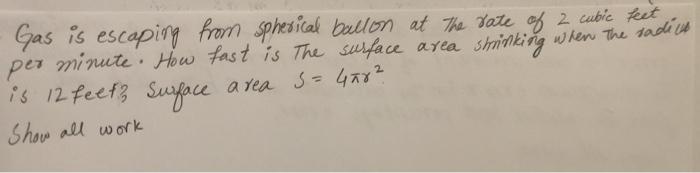 Gas is escaping from spherical ballon at The rate of 2 cubic feet
per minute. How fast is The surface area shrinking when The radius
is 12 feet? Surface area S = 4πr²
Show all work